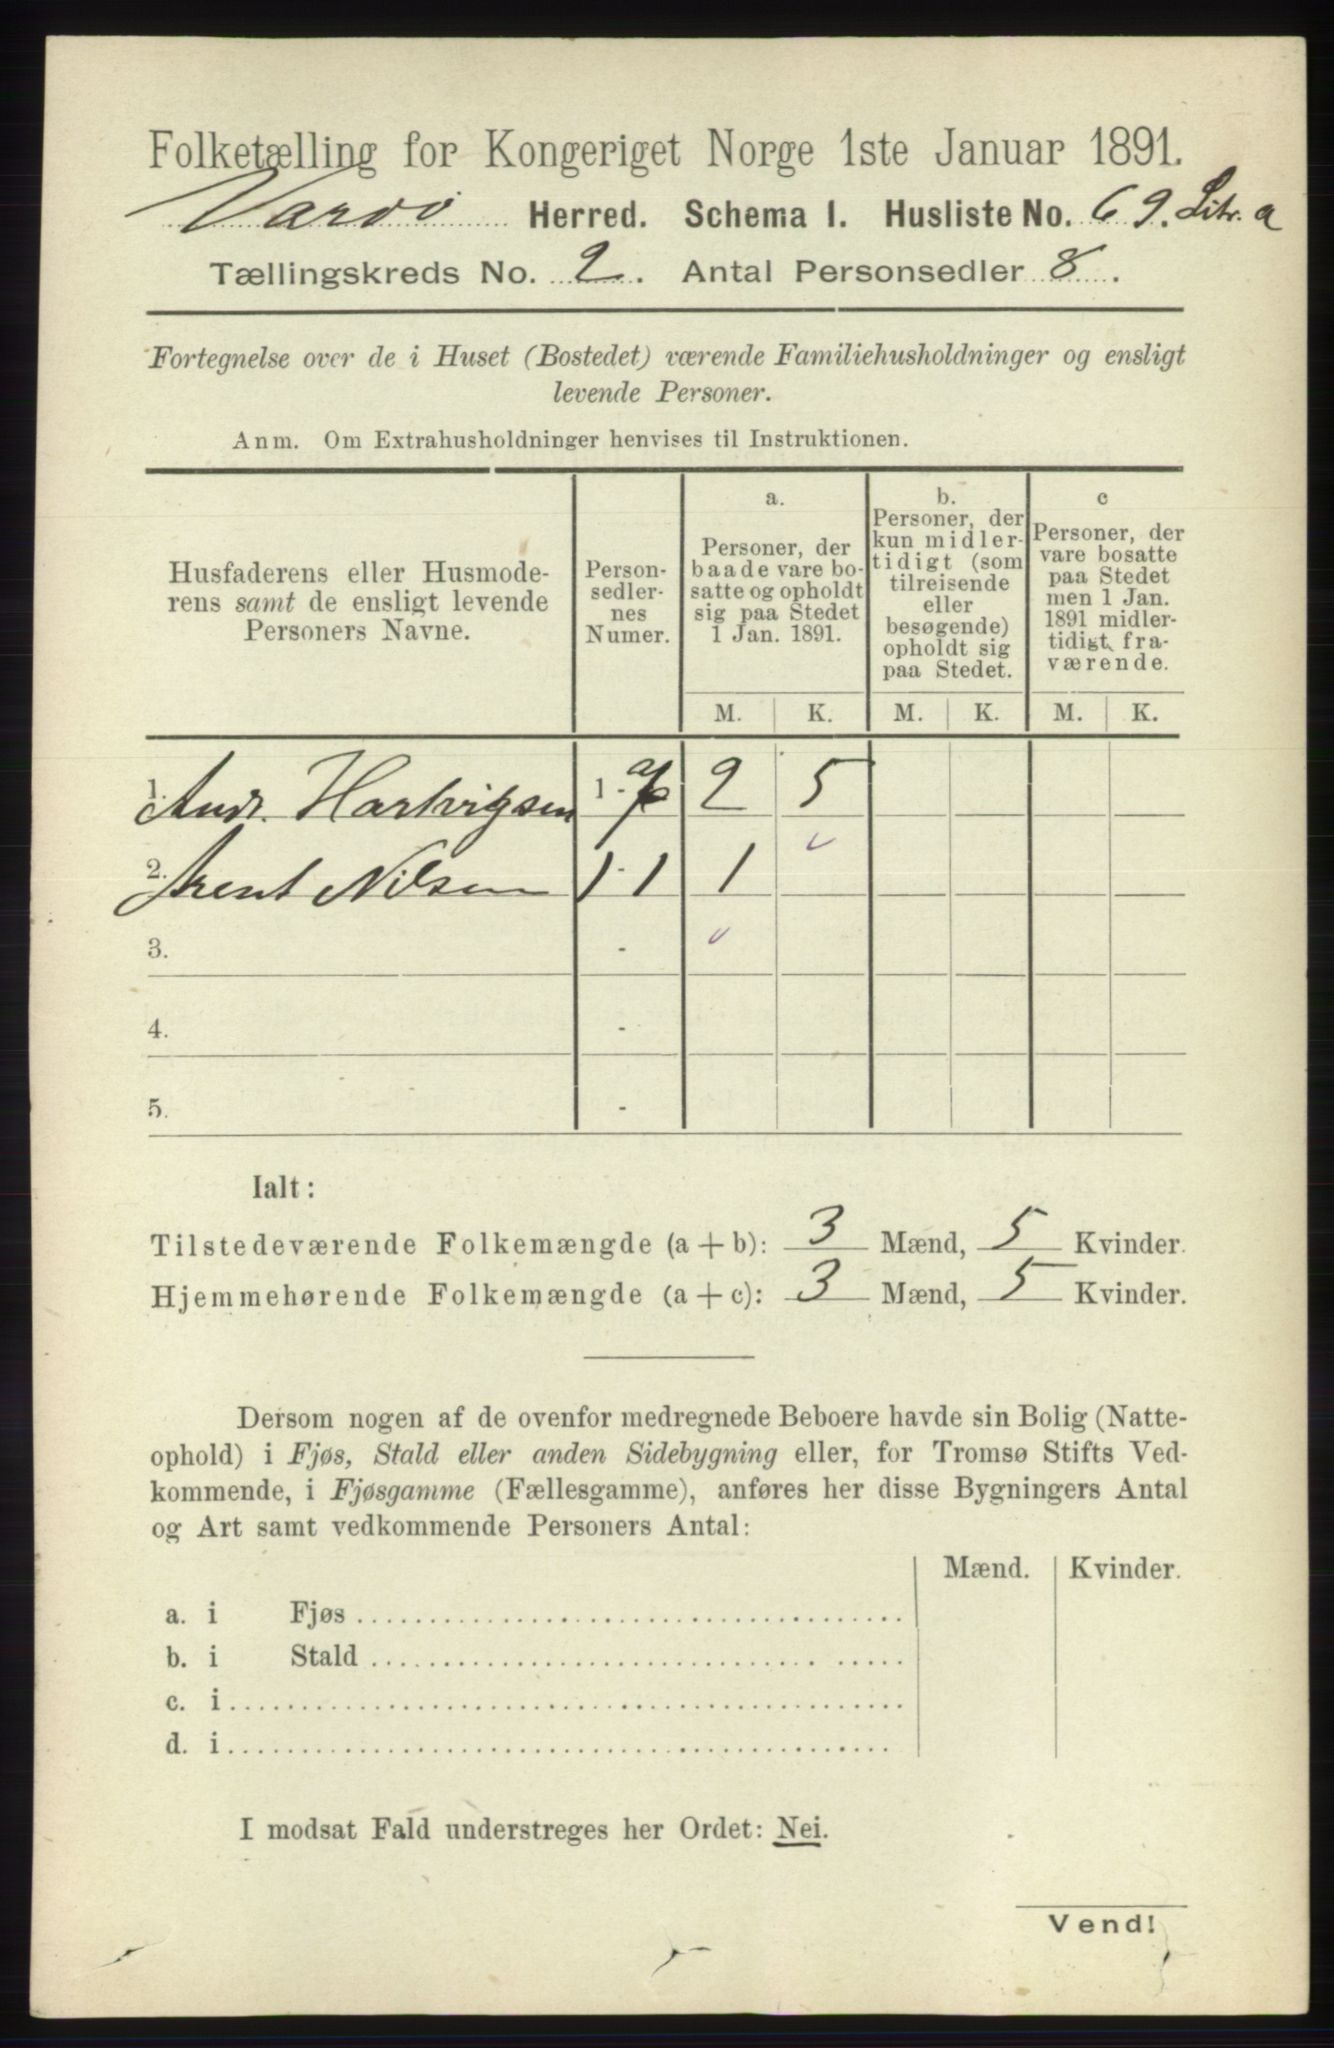 Folketælling for Kongeriget Norge 1ste Januar 1891.
Vardö Herred. Schema I. Husliste No. 69. Litr. a
Tællingskreds No. 2. Antal Personsedler 8.
Fortegnelse over de i Huset (Bostedet) værende Familiehusholdninger og ensligt
levende Personer.
Anm. Om Extrahusholdninger henvises til Instruktionen.
Husfaderens eller Husmode-
rens samt de ensligt levende
Personers Navne.
Person-
sedler-
nes
Numer.
a.
Personer, der
baade vare bo-
satte og opholdt
sig paa Stedet
1 Jan. 1891.
b.
Personer, der
kun midler-
tidigt (som
tilreisende
eller
besøgende)
opholdt sig
paa Stedet.
c
Personer, der
vare bosatte
paa Stedet
men 1 Jan.
1891 midler-
tidigt fra-
værende.
M. K. M. K. M. K.
1. Andr. Hartvigsen 1 - 7 2 5
2. Arent Nilsen 1 - 1 1
3. -
4. -
5. -
Ialt:
Tilstedeværende Folkemængde (a + b): 3 Mænd, 5 Kvinder.
Hjemmehørende Folkemængde (a + c): 3 Mænd, 5 Kvinder.
Dersom nogen af de ovenfor medregnede Beboere havde sin Bolig (Natte-
ophold) i Fjøs, Stald eller anden Sidebygning eller, for Tromsø Stifts Ved-
kommende, i Fjøsgamme (Fællesgamme), anføres her disse Bygningers Antal
og Art samt vedkommende Personers Antal:
Mænd. Kvinder.
a. i Fjøs
b. i Stald
c. i
d. i
I modsat Fald understreges her Ordet: Nei.
Vend!